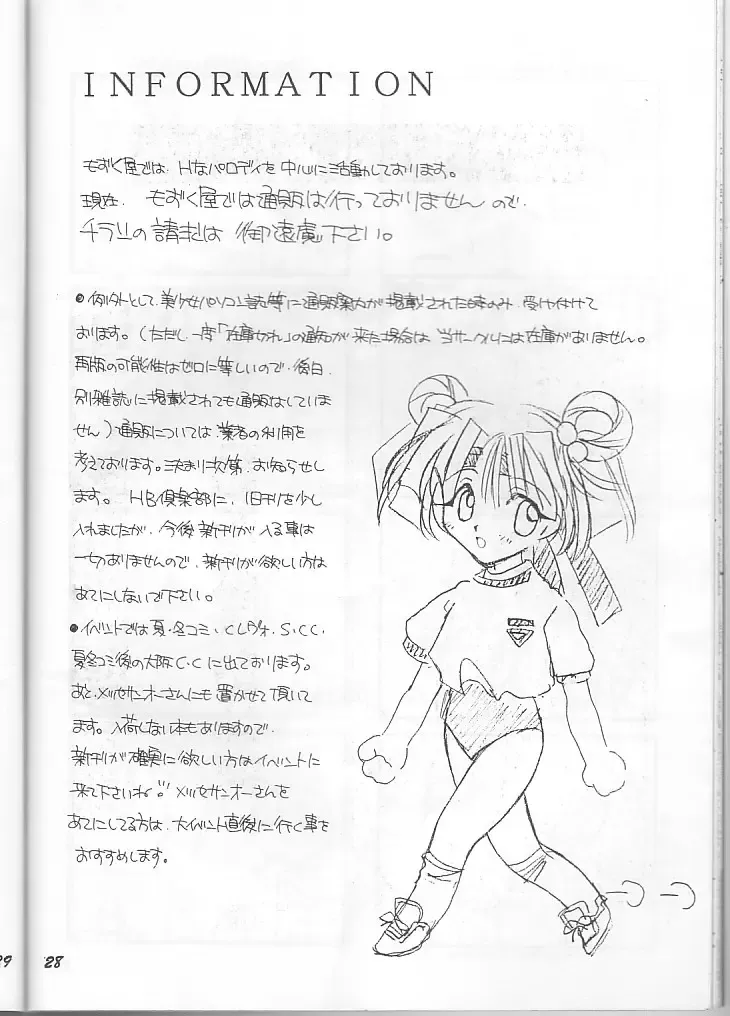 INFORMATION
もずく屋では、Hなパロディを中心に活動しております。
現在、もずく屋では通販は行っておりませんので、
チラシの請求は御遠慮下さい。
●例外として、美少女パソコン誌等に通販案内が掲載された時のみ、受け付けて
おります。(ただし、一度「在庫切れ」の通知が来た場合は、当サークルには在庫がありません。
再版の可能性はゼロに等しいので、後日、
別雑誌に掲載されても通販はしていま
せん)通販については業者の利用を
考えております。決まり次第、お知らせし
ます。HB倶楽部に、旧刊を少し
入れましたが、今後新刊が入る事は
一切ありませんので、新刊が欲しい方は
あてにしないで下さい。
●イベントでは夏・冬コミ、Cレヴォ、S.C.C.
夏冬コミ後の大阪C.Cに出ております。
あと、メッセサンオーさんにも置かせて頂いて
ます。入荷しない本もありますので、
新刊が確実に欲しい方はイベントに
来て下さいね。メッセサンオーさんを
あてにしてる方は、大イベント直後に行く事を
おすすめします。
29
28